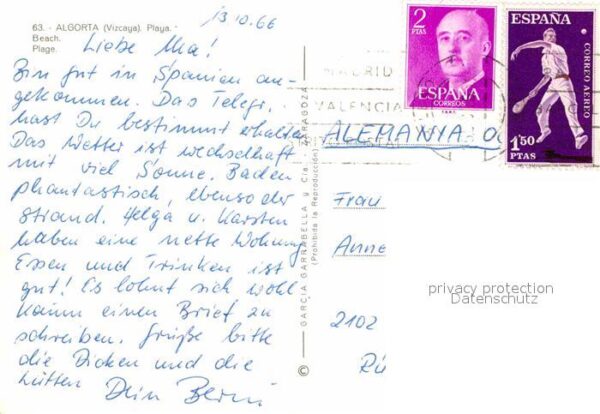 13.10.66
63. - ALGORTA (Vizcaya). Playa.
Beach.
Plage.
Liebe Ma!
Bin gut in Spanien an-
gekommen. Das Telegr.
hast Du bestimmt erhalten
Das Wetter ist wechselhaft
mit viel Sonne. Baden
phantastisch, ebenso der
Strand. Helga u. Karsten
haben eine nette Wohnung
Essen und Trinken ist
gut! Es lohnt sich wohl
kaum einen Brief zu
schreiben. Grüße bitte
die Dicken und die
Lütten Dein Berni
© GARCIA GARRABELLA y Cía. - ZARAGOZA
(Prohibida la Reproducción)
2
PTAS
ESPAÑA
CORREOS
ESPAÑA
CORREO AEREO
1'50
PTAS
MADRID
VALENCIA
ALEMANIA
Frau
Anne
2102
privacy protection
Datenschutz